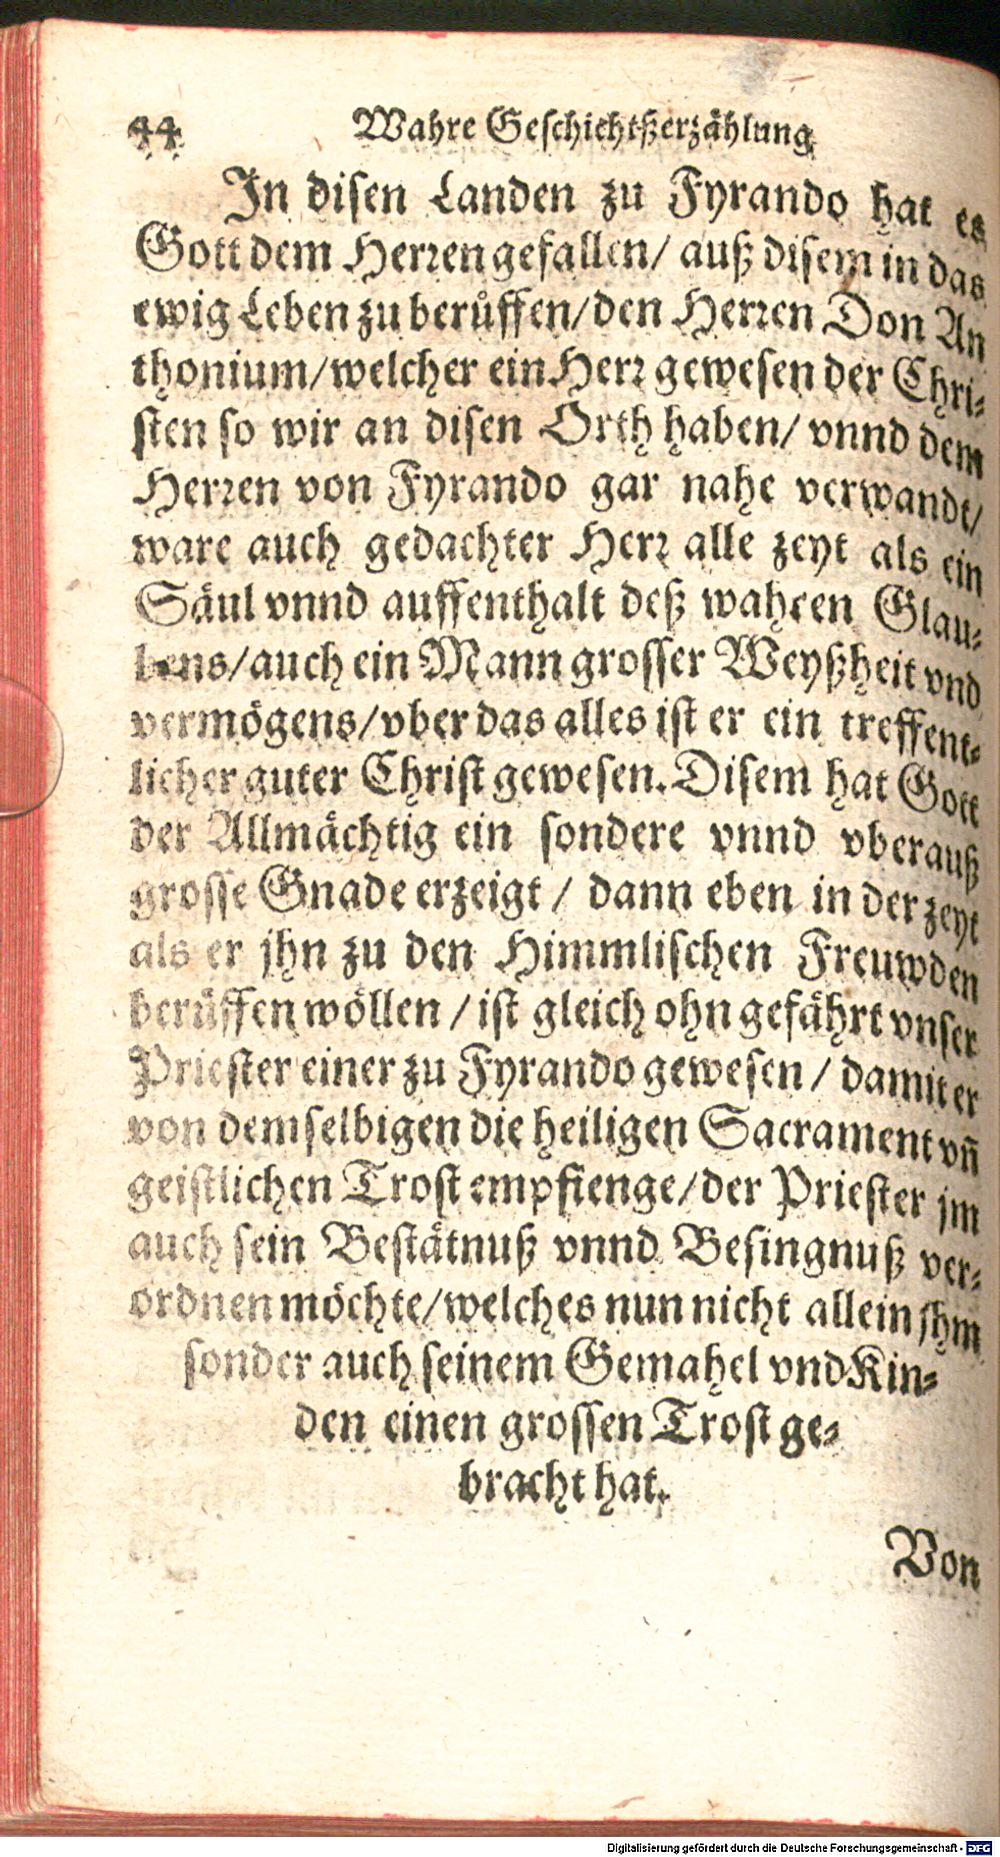 44 Wahre Geschichtßerzählung
In disen Landen zu Fyrando hat es
Gott dem Herren gefallen/ auß disem in das
ewig Leben zu berůffen/ den Herren Don An
thonium/ welcher ein Herr gewesen der Chri-
sten so wir an disen Orth haben/ vnnd dem
Herren von Fyrando gar nahe verwandt/
ware auch gedachter Herr alle zeyt als ein
Säul vnnd auffenthalt deß wahren Glau-
bens/ auch ein Mann grosser Weyßheit vnd
vermögens/ vber das alles ist er ein treffent-
licher guter Christ gewesen. Disem hat Gott
der Allmächtig ein sondere vnnd vberauß
grosse Gnade erzeigt / dann eben in der zeyt
als er jhn zu den Himmlischen Freuwden
berüffen wöllen / ist gleich ohn gefährt vnser
Priester einer zu Fyrando gewesen / damit er
von demselbigen die heiligen Sacrament vñ
geistlichen Trost empfienge/ der Priester jm
auch sein Bestätnuß vnnd Besingnuß ver-
ordnen möchte/ welches nun nicht allein jhm
sonder auch seinem Gemahel vnd Kin-
den einen grossen Trost ge-
bracht hat.
Von
Digitalisierung gefördert durch die Deutsche Forschungsgemeinschaft - DFG